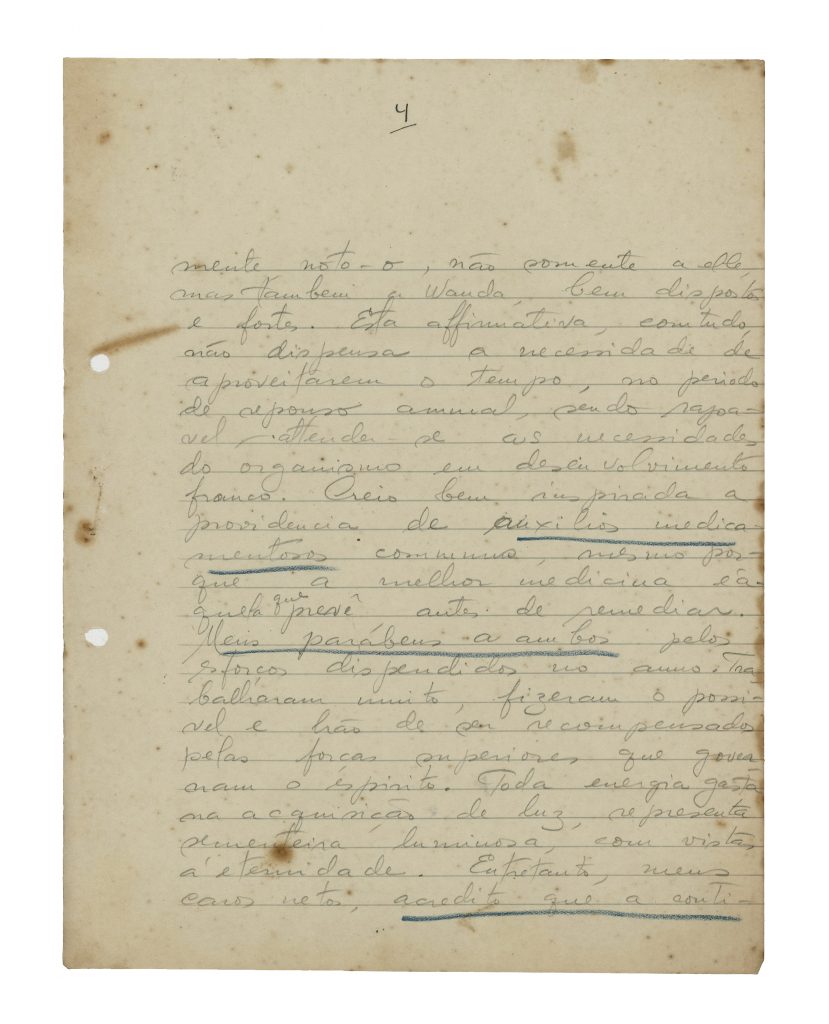 4
mente noto-o, não somente a elle,
mas tambem a Wanda, bem dispostos
e fortes. Esta affirmativa, comtudo,
não dispensa a necessidade de
aproveitarem o tempo, no periodo
de repouso annual, sendo razoa-
vel attender-se as necessidades
do organismo em desenvolvimento
franco. Creio bem inspirada a
providencia de auxilios medica-
mentosos communs, mesmo por-
que a melhor medicina é a-
quela que prevê antes de remediar.
Meus parábens a ambos pelos
esforços dispendidos no anno. Tra-
balharam muito, fizeram o possi-
vel e hão de ser recompensados
pelas forças superiores que gover-
nam o espirito. Toda energia gasta
na acquisição de luz, representa
sementeira luminosa, com vistas
á eternidade. Entretanto, meus
caros netos, acredito que a conti-